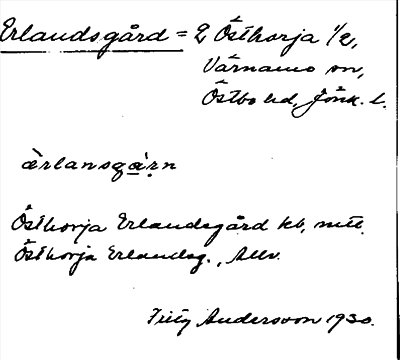 Erlandsgård = 2 Östhorja 1/2,
Värnamo sn,
Östbo hd, Jönk. l.
ärlansgàṛn
Östhorja Erlandsgård kb, mtl.
Östhorja Erlandsg., Allv.
Fritz Andersson 1930.